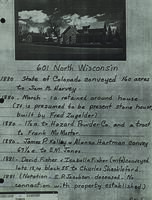 601 North Wisconsin
1880 State of Colorado conveyed 160 acres
to Jam M. Harvey
1880 - March - 1a retained around house
(It is presumed to be present stone house
built by Fred Zugelder)
1880 - 1½a. to Hazard Powder Co. and a tract
to Frank Mc Master.
1880 - James P. Kelley & Alonzo Hartman survey
69½ a. to E.M. Jones
1881 - David Fisher & Isabella Fisher (wife) conveyed
lots 1 to block 55 to Charles Shackleford
1881 (Notation - E.P. Jacobson deceased. No
connection with property established.)